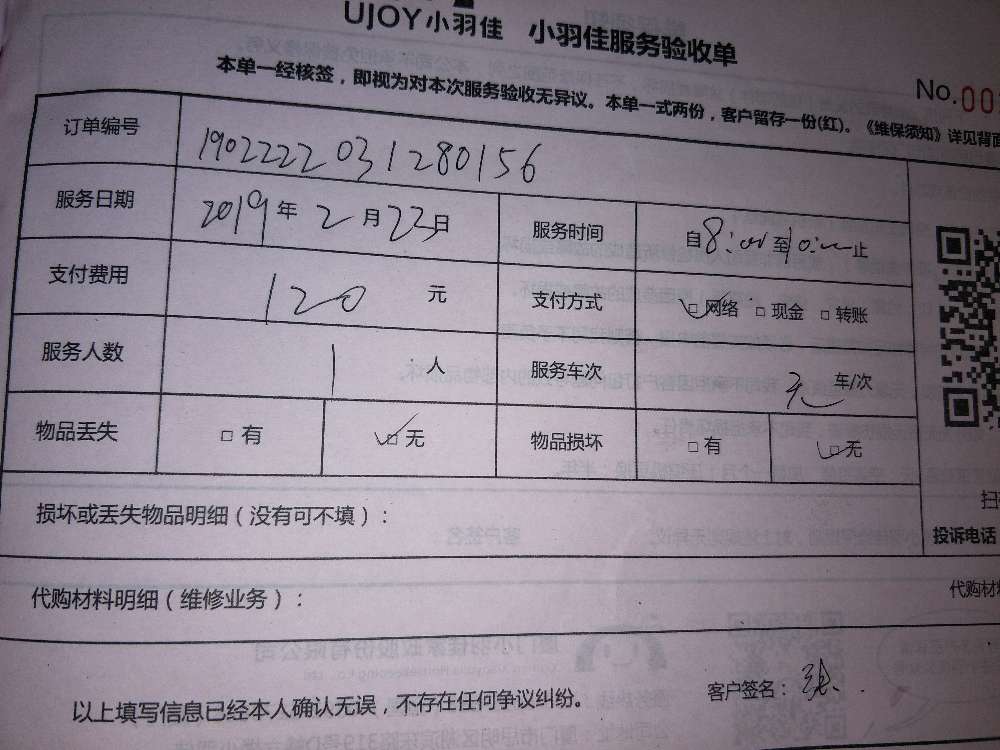 UJOY小羽佳 小羽佳服务验收单
本单一经核签，即视为对本次服务验收无异议。本单一式两份，客户留存一份(红)。《维保须知》详见背面
No.00
订单编号 1902222031280156
服务日期 2019年2月23日 服务时间 自8:00至10:00止
支付费用 120元 支付方式 ☑网络 □现金 □转账
服务人数 1人 服务车次 无 车/次
物品丢失 □有 ☑无 物品损坏 □有 ☑无
损坏或丢失物品明细（没有可不填）：
扫
投诉电话
代购材料明细（维修业务）：
代购材料
以上填写信息已经本人确认无误，不存在任何争议纠纷。
客户签名：张